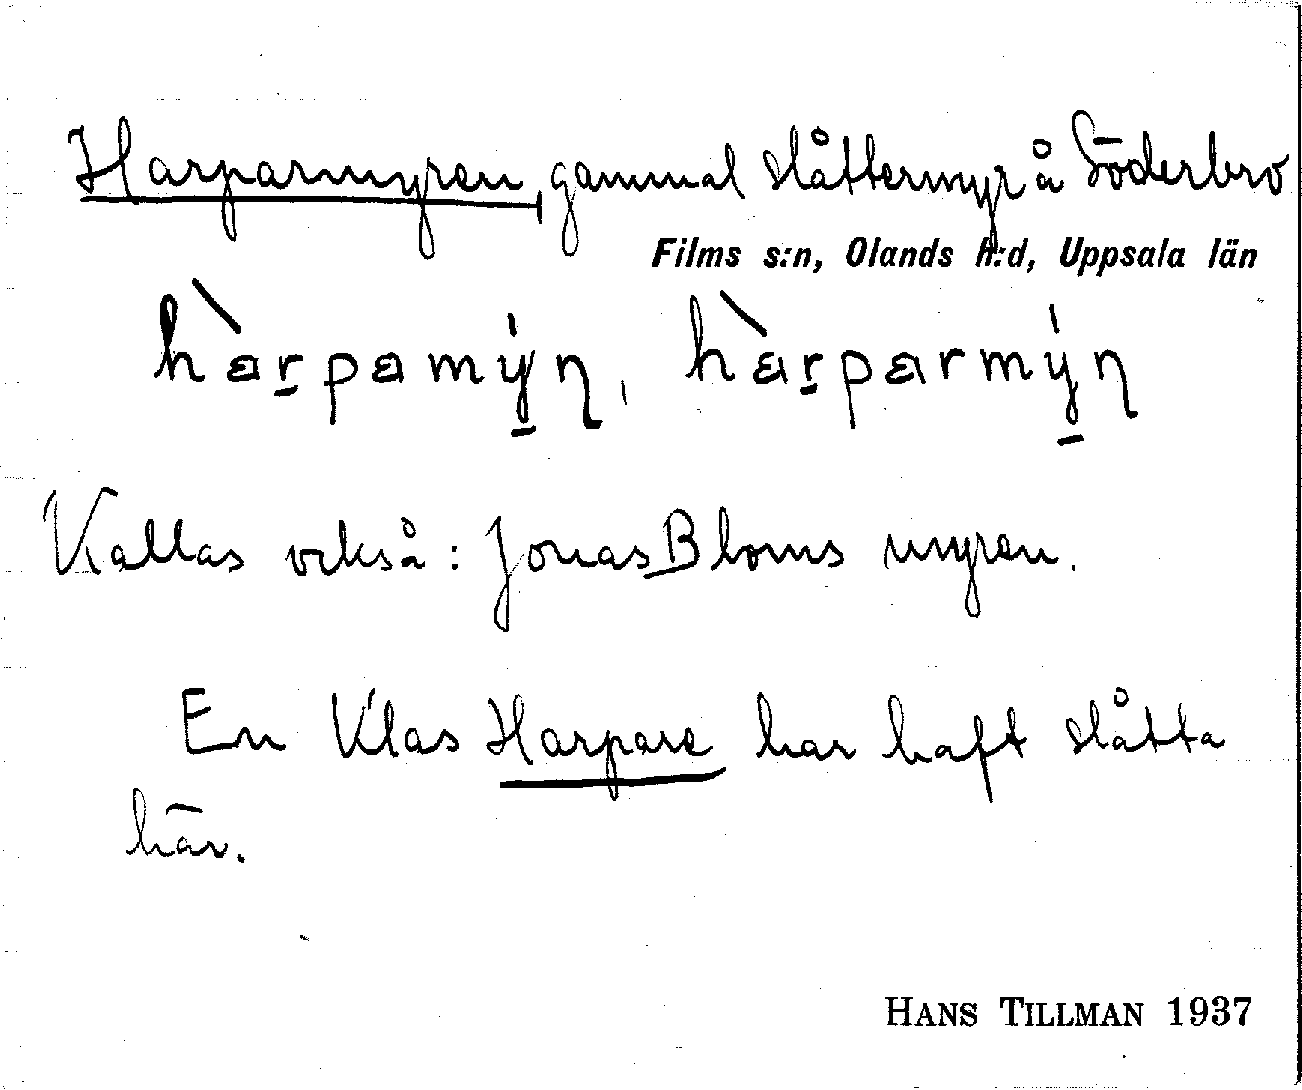 Harparmyren, gammal slåttermyr å Söderbro
Films s:n, Olands h:d, Uppsala län
hàr̲pamý̲n, hàr̲parmý̲n
Kallas också: Jonas Bloms myren.
En Klas Harpare har haft slåtta
här.
HANS TILLMAN 1937